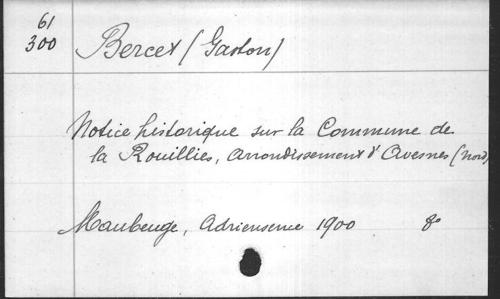 61
300
Bercet (Gaston)
Notice historique sur la Commune de
la Rouillies, arrondissement d'Avesnes (Nord)
Maubeuge, 1900 8º